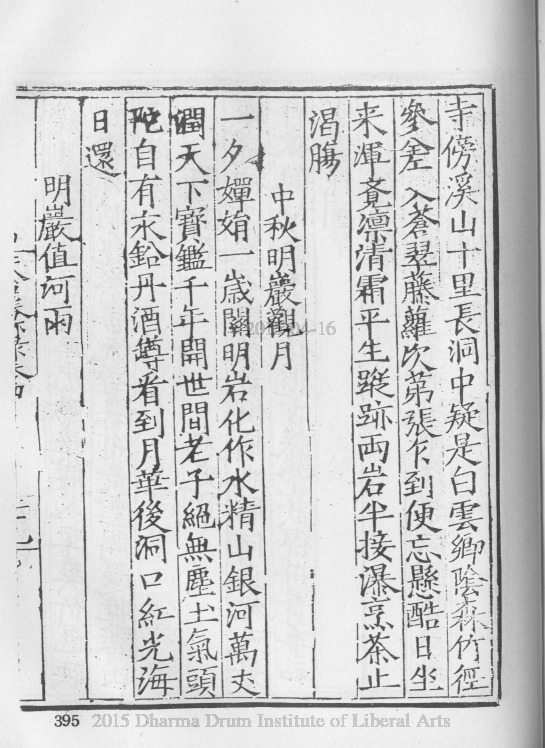 寺傍溪山十里長洞中疑是白雲鄉陰森竹徑
參差入蒼翠藤蘿次第張乍到便忘懸酷日坐
来渾覺凛清霜平生蹤跡两岩半接瀑烹茶止
渴腸
中秋明巖觀月
一夕嬋娟一歲關明岩化作水精山銀河萬丈
天下寳鑑千年開世間老子絕無塵土氣頭
陁自有永鉛丹酒罇看到月華後洞口紅光海
日還
明巖值河雨
395 2015 Dharma Drum Institute of Liberal Arts